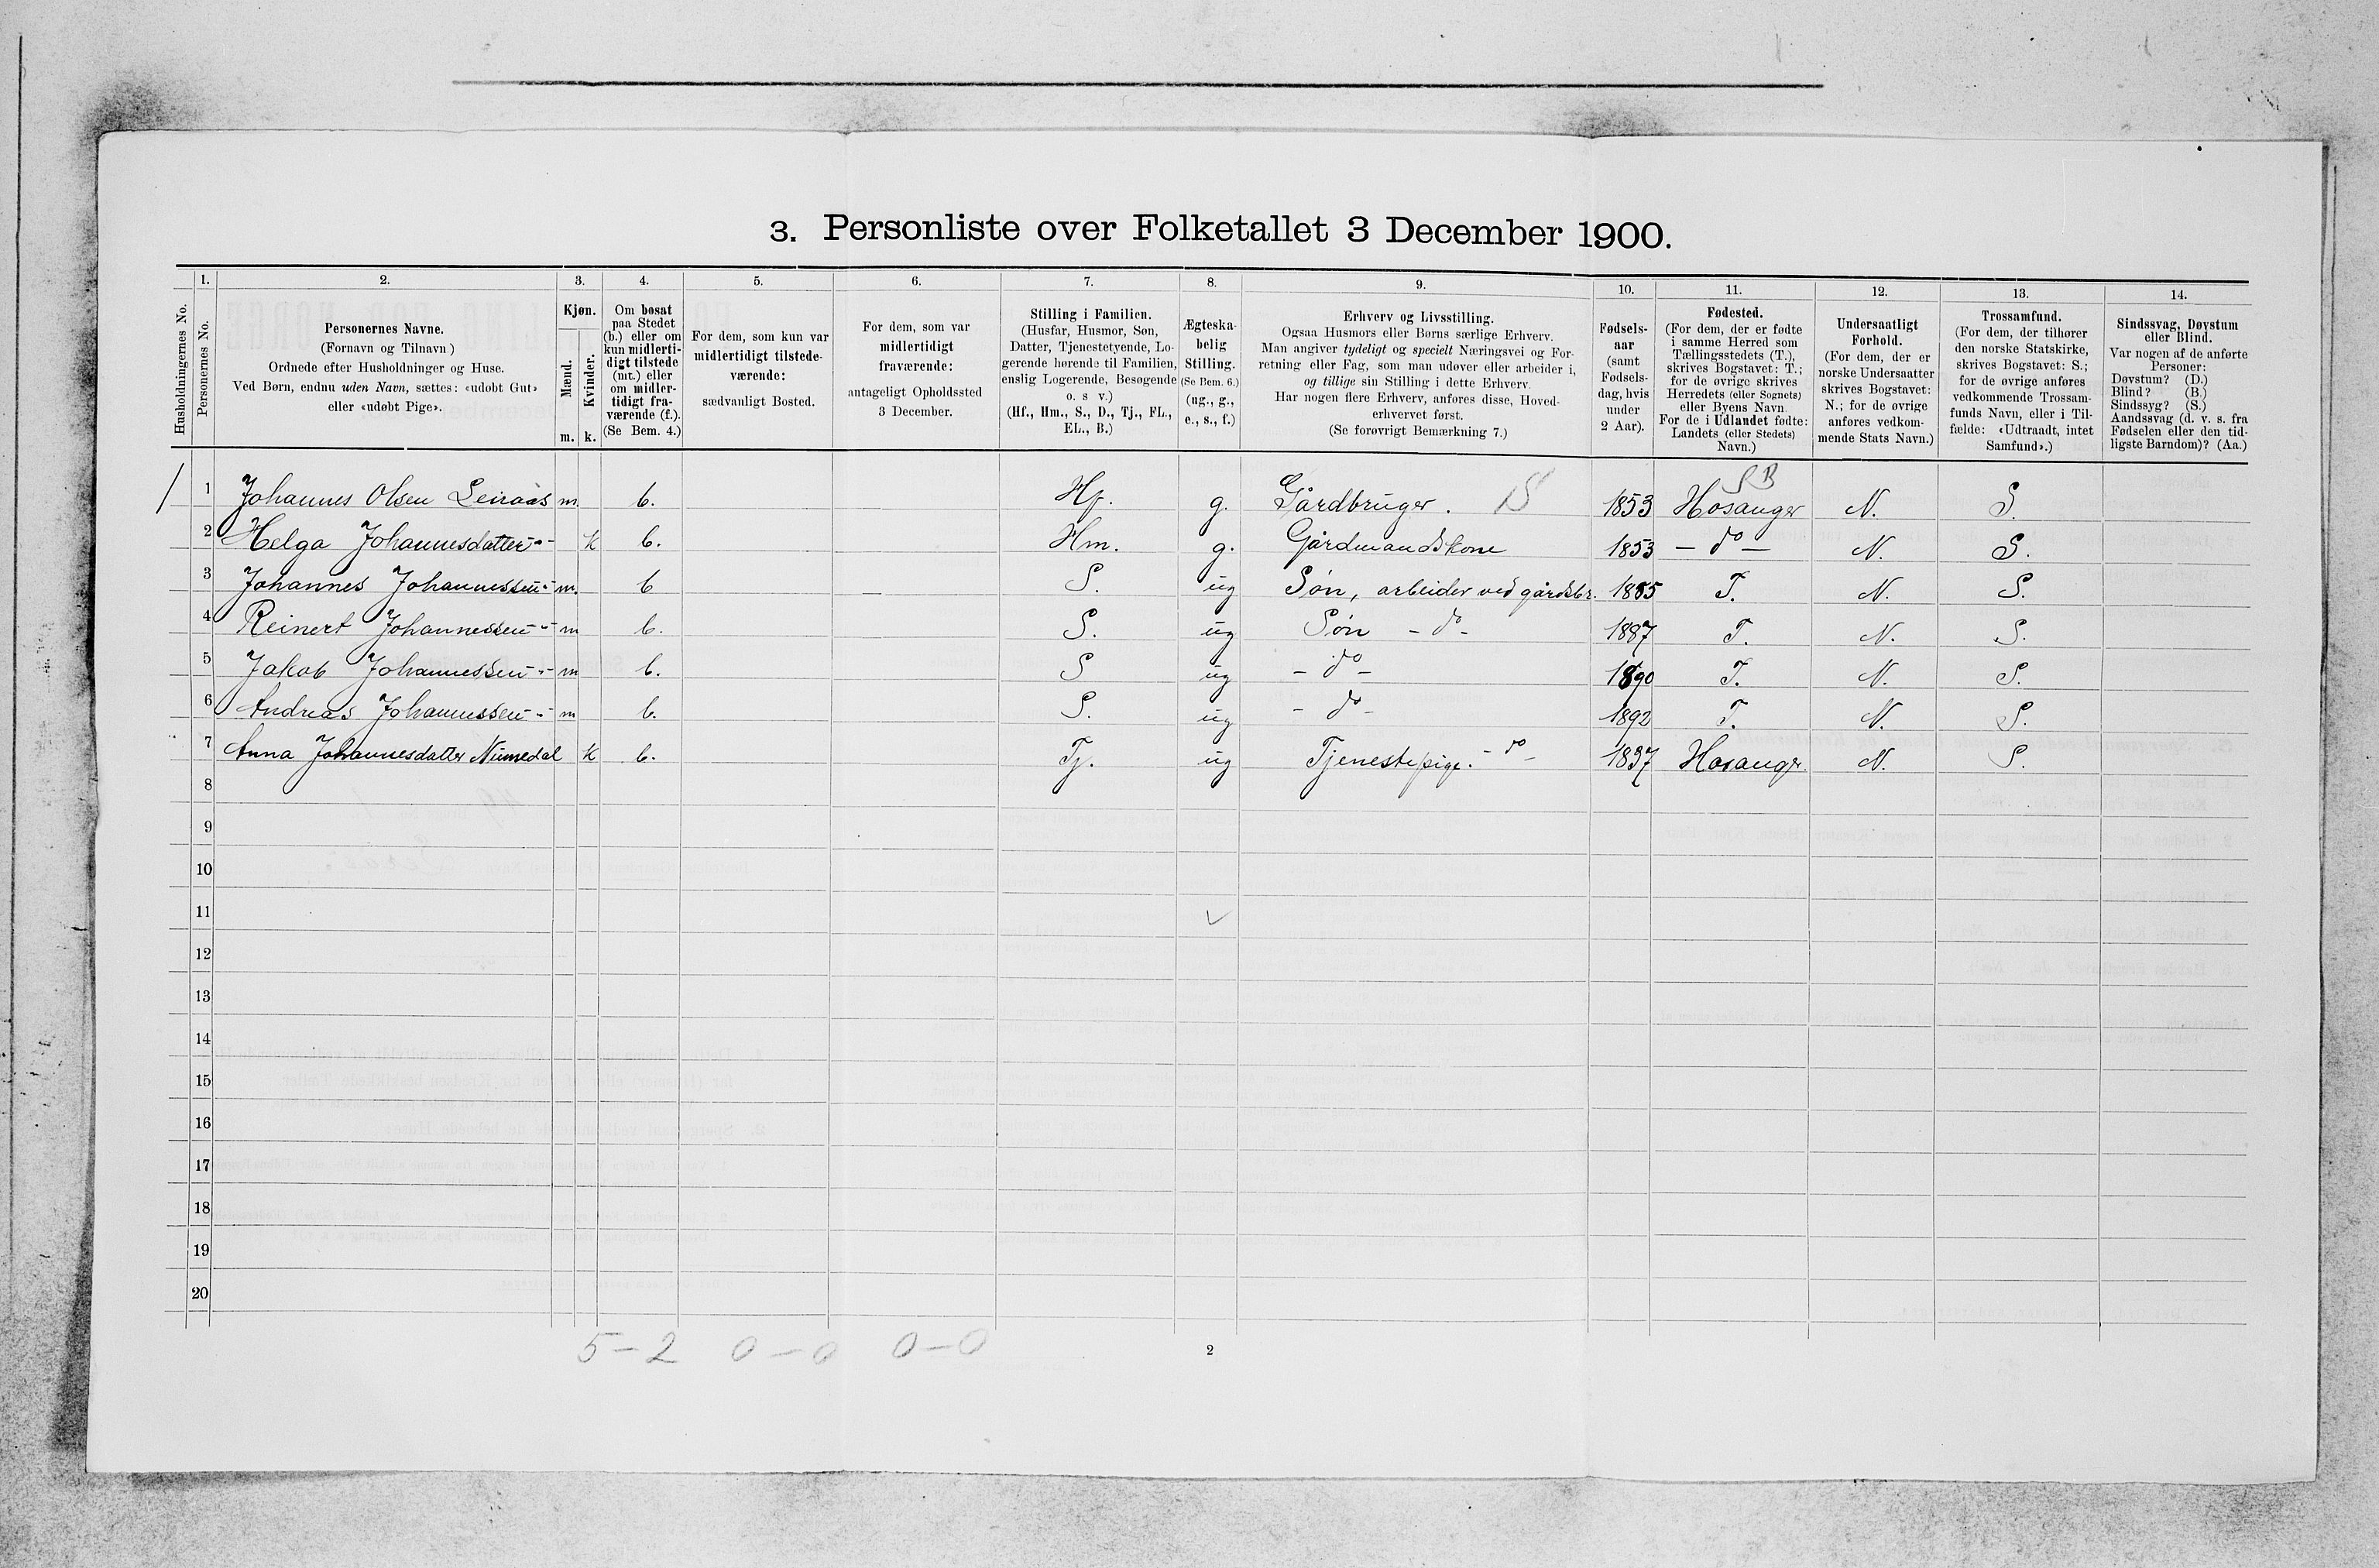 3. Personliste over Folketallet 3 December 1900.
1. 2. 3. 4. 5. 6. 7. 8. 9. 10. 11. 12. 13. 14.
Husholdningernes No.
Personernes No.
Personernes Navne.
(Fornavn og Tilnavn)
Ordnede efter Husholdninger og Huse.
Ved Børn, endnu uden Navn, sættes: «udøbt Gut»
eller «udøbt Pige».
Kjøn.
Mænd.
Kvinder.
m. k.
Om bosat
paa Stedet
(b.) eller om
kun midlerti-
digt tilstede
(mt.) eller
om midler-
tidigt fra-
værende (f.).
(Se Bem. 4.)
For dem, som kun var
midlertidigt tilstede-
værende:
sædvanligt Bosted.
For dem, som var
midlertidigt
fraværende:
antageligt Opholdssted
3 December.
Stilling i Familien.
(Husfar, Husmor, Søn,
Datter, Tjenestetyende, Lo-
gerende hørende til Familien,
enslig Logerende, Besøgende
o. s v.)
(Hf., Hm., S., D., Tj., FL.,
EL., B.)
Ægteska-
belig
Stilling.
(Se Bem. 6.)
(ug., g.,
e., s., f.)
Erhverv og Livsstilling.
Ogsaa Husmors eller Børns særlige Erhverv.
Man angiver tydeligt og specielt Næringsvei og For-
retning eller Fag, som man udøver eller arbeider i,
og tillige sin Stilling i dette Erhverv.
Har nogen flere Erhverv, anføres disse, Hoved-
erhvervet først.
(Se forøvrigt Bemærkning 7.)
Fødsels-
aar
(samt
Fødsels-
dag, hvis
under
2 Aar).
Fødested.
(For dem, der er fødte
i samme Herred som
Tællingsstedets (T.),
skrives Bogstavet: T.;
for de øvrige skrives
Herredets (eller Sognets)
eller Byens Navn.
For de i Udlandet fødte:
Landets (eller Stedets)
Navn.)
Undersaatligt
Forhold.
(For dem, der er
norske Undersaatter
skrives Bogstavet:
N.; for de øvrige
anføres vedkom-
mende Stats Navn.)
Trossamfund.
(For dem, der tilhører
den norske Statskirke,
skrives Bogstavet: S.;
for de øvrige anføres
vedkommende Trossam-
funds Navn, eller i Til-
fælde: «Udtraadt, intet
Samfund».)
Sindssvag, Døvstum
eller Blind.
Var nogen af de anførte
Personer:
Døvstum? (D.)
Blind? (B.)
Sindssyg? (S.)
Aandssvag (d. v. s. fra
Fødselen eller den tid-
ligste Barndom)? (Aa.)
SB
1 Johannes Olsen Leiraas m. b. Hf. g. Gårdbruger. 1853 Hosanger N. S.
2 Helga Johannesdatter -"- k b. Hm. g. Gårdmandskone 1853 - do - N. S.
3 Johannes Johannessen -"- m. b S. ug Søn, arbeider ved gårdsbr. 1885 T. N. S.
4 Reinert Johannessen -"- m b. S. ug Søn - do - 1887 T. N. S.
5 Jakob Johannessen -"- m b. S ug - do - 1890 T. N. S.
6 Andreas Johannessen -"- m b. S. ug - do - 1892 T. N. S.
7 Anna Johannesdatter k b. Tj. ug Tjenestepige. - do - 1837 Hosangr. N. S.
8
9
10
11
12
13
14
15
16
17
18
19
20
5 - 2 0 - 0 0 - 0
2